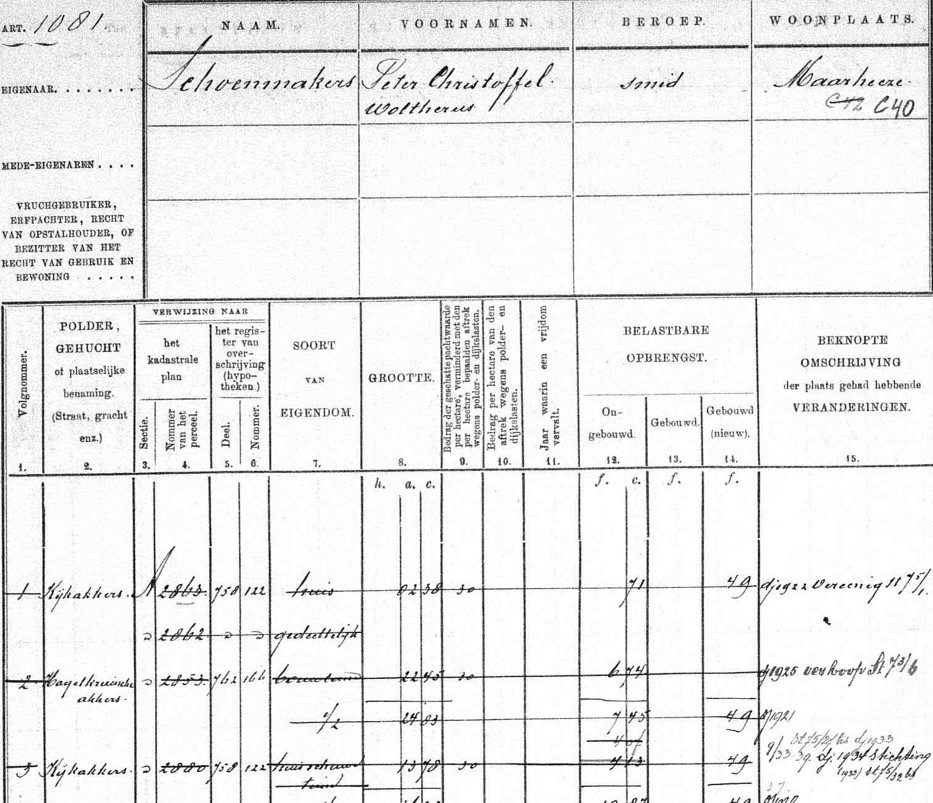 ART. 1081.
NAAM. VOORNAMEN. BEROEP. WOONPLAATS.
EIGENAAR. . . . . . . . Schoenmakers Peter Christoffel smid Maarheeze
Woltherus C 12 C 40
MEDE-EIGENAREN . . . .
VRUCHGEBRUIKER,
ERFPACHTER, RECHT
VAN OPSTALHOUDER, OF
BEZITTER VAN HET
RECHT VAN GEBRUIK EN
BEWONING . . . . .
Volgnommer.
1.
POLDER,
GEHUCHT
of plaatselijke
benaming.
(Straat, gracht
enz.)
2.
VERWIJZING NAAR
het
kadastrale
plan
Sectie.
3.
Nommer
van het
perceel.
4.
het regis-
ter van
over-
schrijving
(hypo-
theken.)
Deel.
5.
Nommer.
6.
SOORT
VAN
EIGENDOM.
7.
GROOTTE.
8.
Bedrag der geschatte pachtwaarde
per hectare, verminderd met den
per hectare bepaalden aftrek
wegens polder- en dijkslasten.
9.
Bedrag per hectare van den
aftrek wegens polder- en
dijkslasten.
10.
Jaar waarin een vrijdom
vervalt.
11.
BELASTBARE
OPBRENGST.
On-
gebouwd.
12.
Gebouwd.
13.
Gebouwd
(nieuw).
14.
BEKNOPTE
OMSCHRIJVING
der plaats gehad hebbende
VERANDERINGEN.
15.
h. a. c. f. c. f. f.
1 Kijkakkers. A 2863 758 122 huis 02 38 30 71 49 dj 1922 Vereenig
2862 gedeeltelijk
2 Hagelkruis 2853 762 166 bouwland 22 45 30 6 74 dj 1925 verkoop St 73/6
akkers.
1/2 24 83 7 45 49 1921
3 Kijkakkers. 2880 758 122 huis schuur 13 78 30 4 13 49 dj 1934 Stichting
tuin